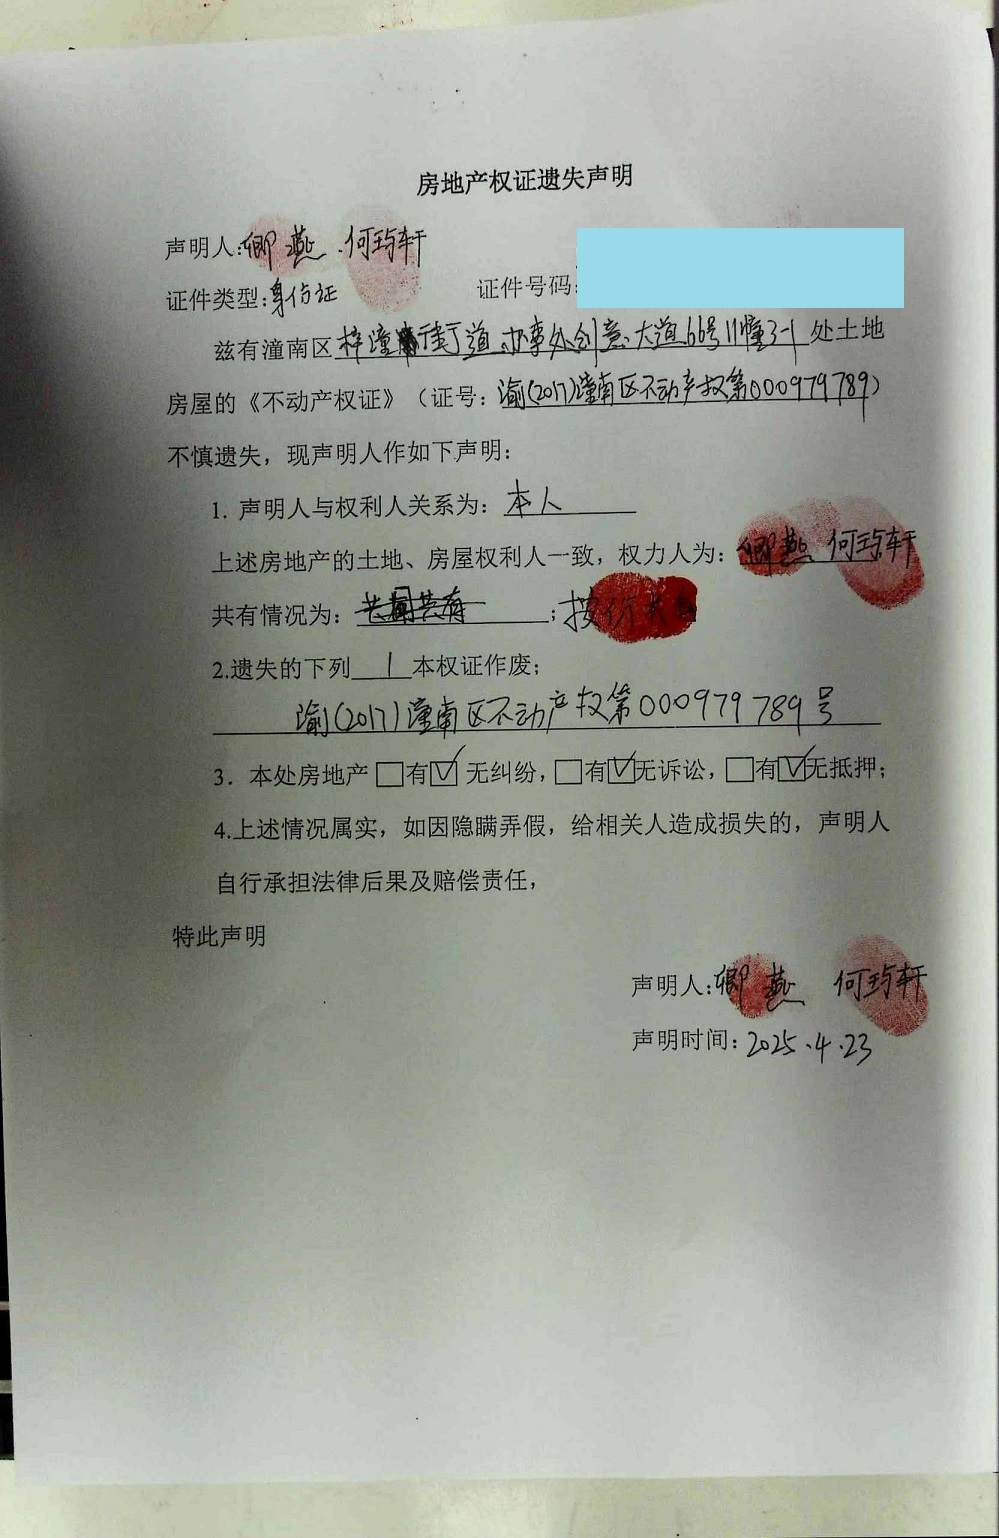 房地产权证遗失声明
声明人:卿燕 何玙轩
证件类型:身份证 证件号码:
兹有潼南区梓潼街道办事处创意大道66号11幢3-1处土地
房屋的《不动产权证》（证号：渝(2017)潼南区不动产权第000979789）
不慎遗失，现声明人作如下声明：
1. 声明人与权利人关系为：本人
上述房地产的土地、房屋权利人一致，权力人为：卿燕 何玙轩
共有情况为：共同共有；按份共有
2.遗失的下列 1 本权证作废；
渝(2017)潼南区不动产权第000979789号
3．本处房地产□有☑无纠纷，□有☑无诉讼，□有☑无抵押；
4.上述情况属实，如因隐瞒弄假，给相关人造成损失的，声明人
自行承担法律后果及赔偿责任，
特此声明
声明人:卿燕 何玙轩
声明时间：2025.4.23